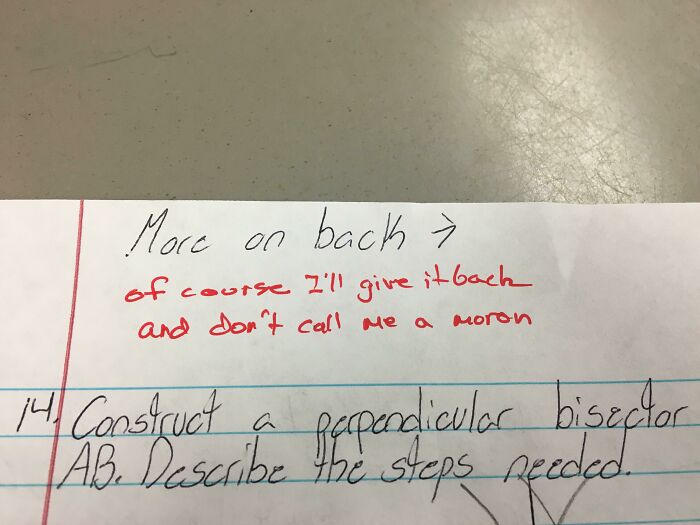 More on back →
of course I'll give it back
and don't call me a moron
14. Construct a perpendicular bisector
AB. Describe the steps needed.